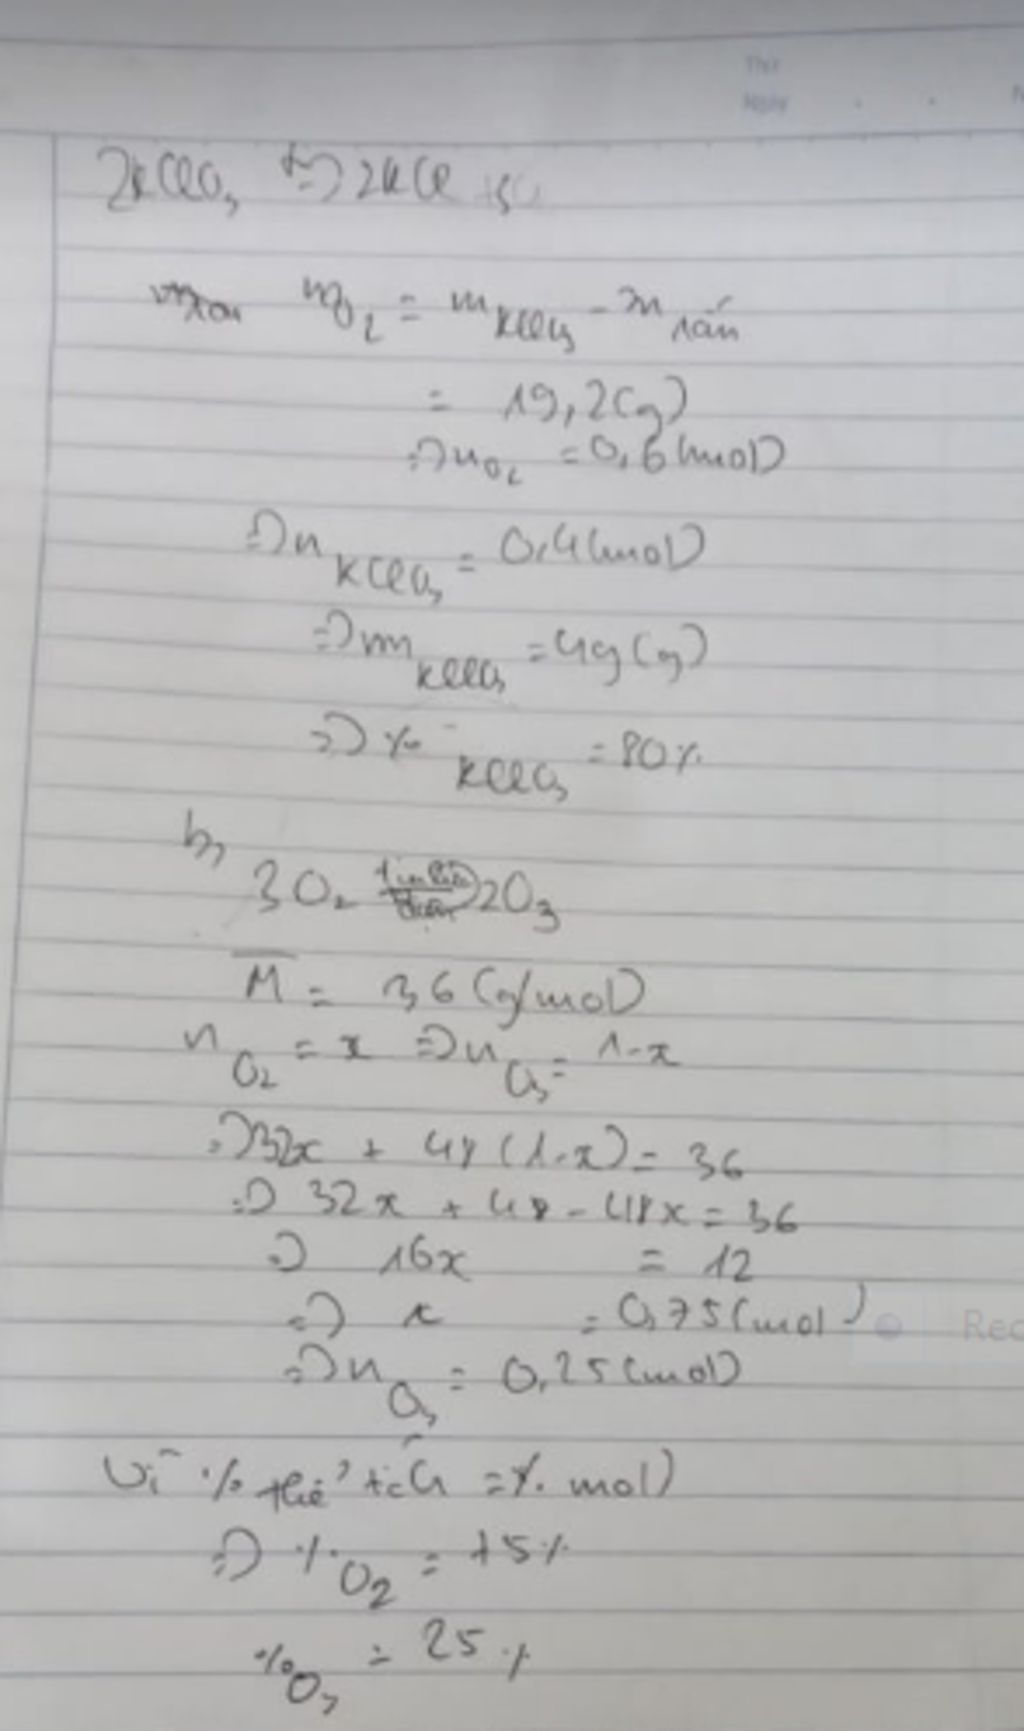 Thứ
Ngày
2KClO₃ t°⇒ 2KCl
m O₂ = m KClO₃ - m rắn
= 19,2(g)
⇒ n O₂ = 0,6 (mol)
⇒ n KClO₃ = 0,4 (mol)
⇒ m KClO₃ = 49 (g)
⇒ % KClO₃ = 80%
b,
3O₂ tia lửa điện 2O₃
M̅ = 36 (g/mol)
n O₂ = x ⇒ n O₃ = 1-x
⇒ 32x + 48 (1-x) = 36
⇒ 32x + 48 - 48x = 36
⇒ 16x = 12
⇒ x = 0,75 (mol)
⇒ n O₃ = 0,25 (mol)
Vì % thể tích = % mol
⇒ % O₂ = 75%
% O₃ = 25%
Rec